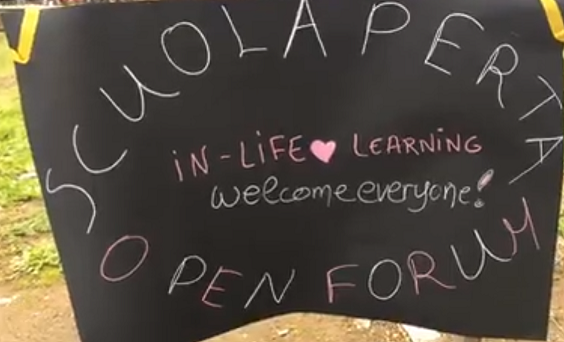 SCUOLAPERTA
iN-LiFE♥ LEARNING
welcomeeveryone!
OPEN FORUM